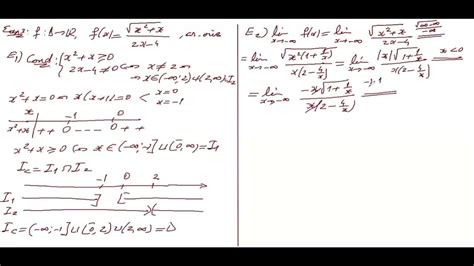 f: D→ℝ, f(x) = √(x²+x) / (2x-4)
E₁) Cond: { x²+x ≥ 0
2x-4 ≠ 0 ⇔ x ≠ 2 ⇒
⇒ x∈(-∞,2)∪(2,∞) I₂
x²+x=0 ⇔ x(x+1)=0 < x=0
x=-1
x -1 0
x²+x + + 0 - - - 0 + +
x²+x ≥ 0 ⇔ x∈(-∞;-1]∪[0,∞)=I₁
I_C = I₁ ∩ I₂
-1 0 2
I₁
I₂
I_C = (-∞;-1]∪[0,2)∪(2,∞) = D
E₂) lim x→-∞ f(x) = lim x→-∞ √(x²+x) / (2x-4)
= lim x→-∞ √(x²(1+1/x)) / x(2-4/x) = lim x→-∞ |x|√(1+1/x) / x(2-4/x) x<0
= lim x→-∞ -x√(1+1/x) / x(2-4/x)